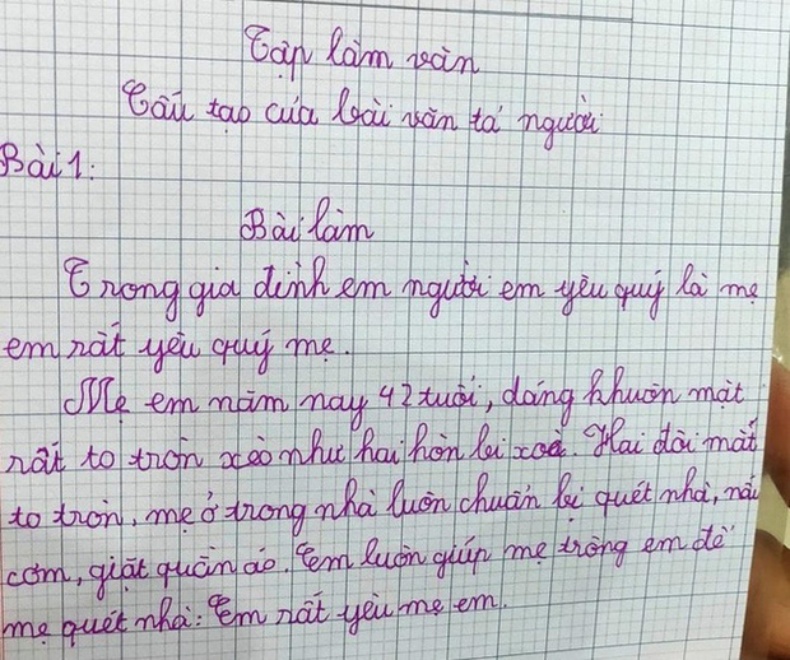 Tập làm văn
Cấu tạo của bài văn tả người
Bài 1:
Bài làm
Trong gia đình em người em yêu quý là mẹ
em rất yêu quý mẹ.
Mẹ em năm nay 42 tuổi, dáng khuôn mặt
rất to tròn xéo như hai hòn bi xoè. Hai đôi mắt
to tròn, mẹ ở trong nhà luôn chuẩn bị quét nhà, nấu
cơm, giặt quần áo. Em luôn giúp mẹ trông em để
mẹ quét nhà: Em rất yêu mẹ em.